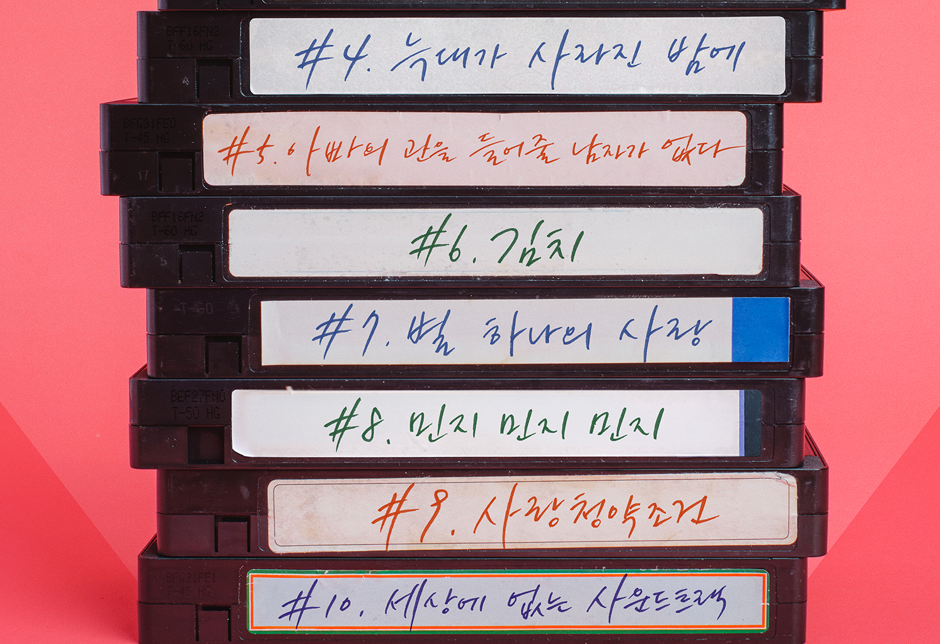 BFF16FN3
T-60 HG
#4. 늑대가 사라진 밤에
#5. 아빠의 관을 들어줄 남자가 없다
BFF16FN2
T-60 HG
#6. 김치
T-60
#7. 별 하나의 사랑
#8. 민지 민지 민지
#9. 사랑청약조건
#10. 세상에 없는 사운드트랙